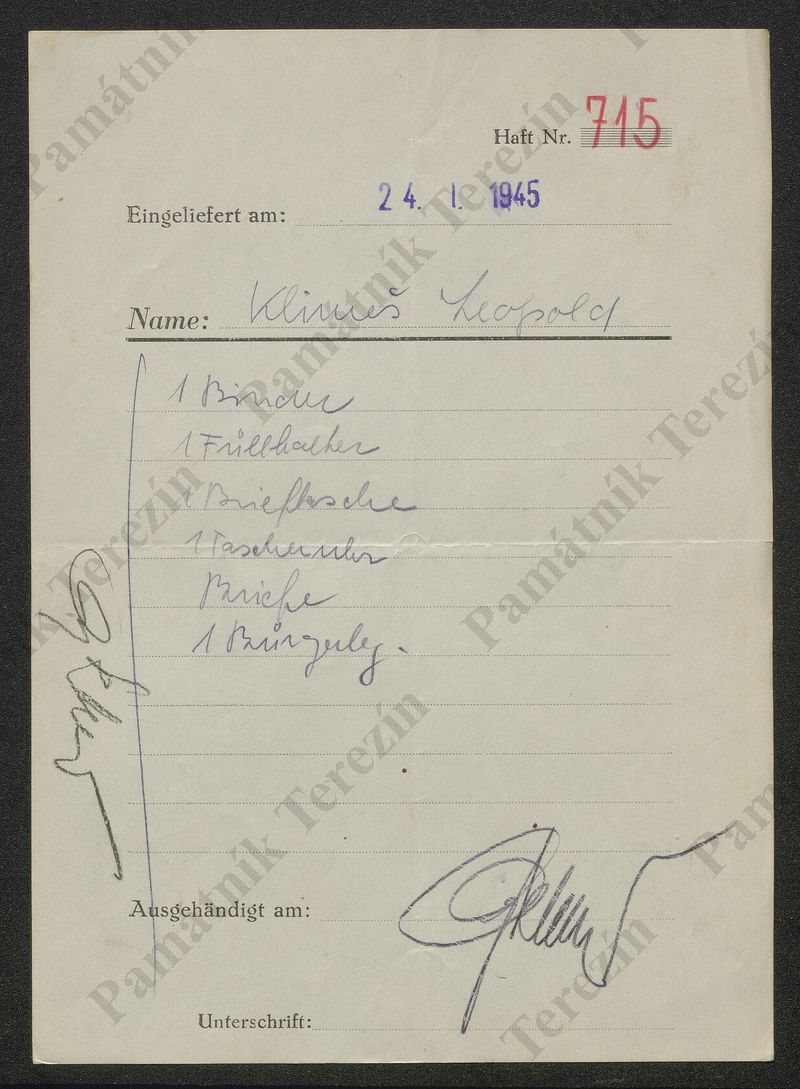 Haft Nr. 715
Eingeliefert am: 24. I. 1945
Name: Klimeš Leopold
1 Binder
1 Füllhalter
1 Brieftasche
1 Taschenuhr
Briefe
1 Bürgerleg.
Ausgehändigt am:
Unterschrift:
Památník Terezín